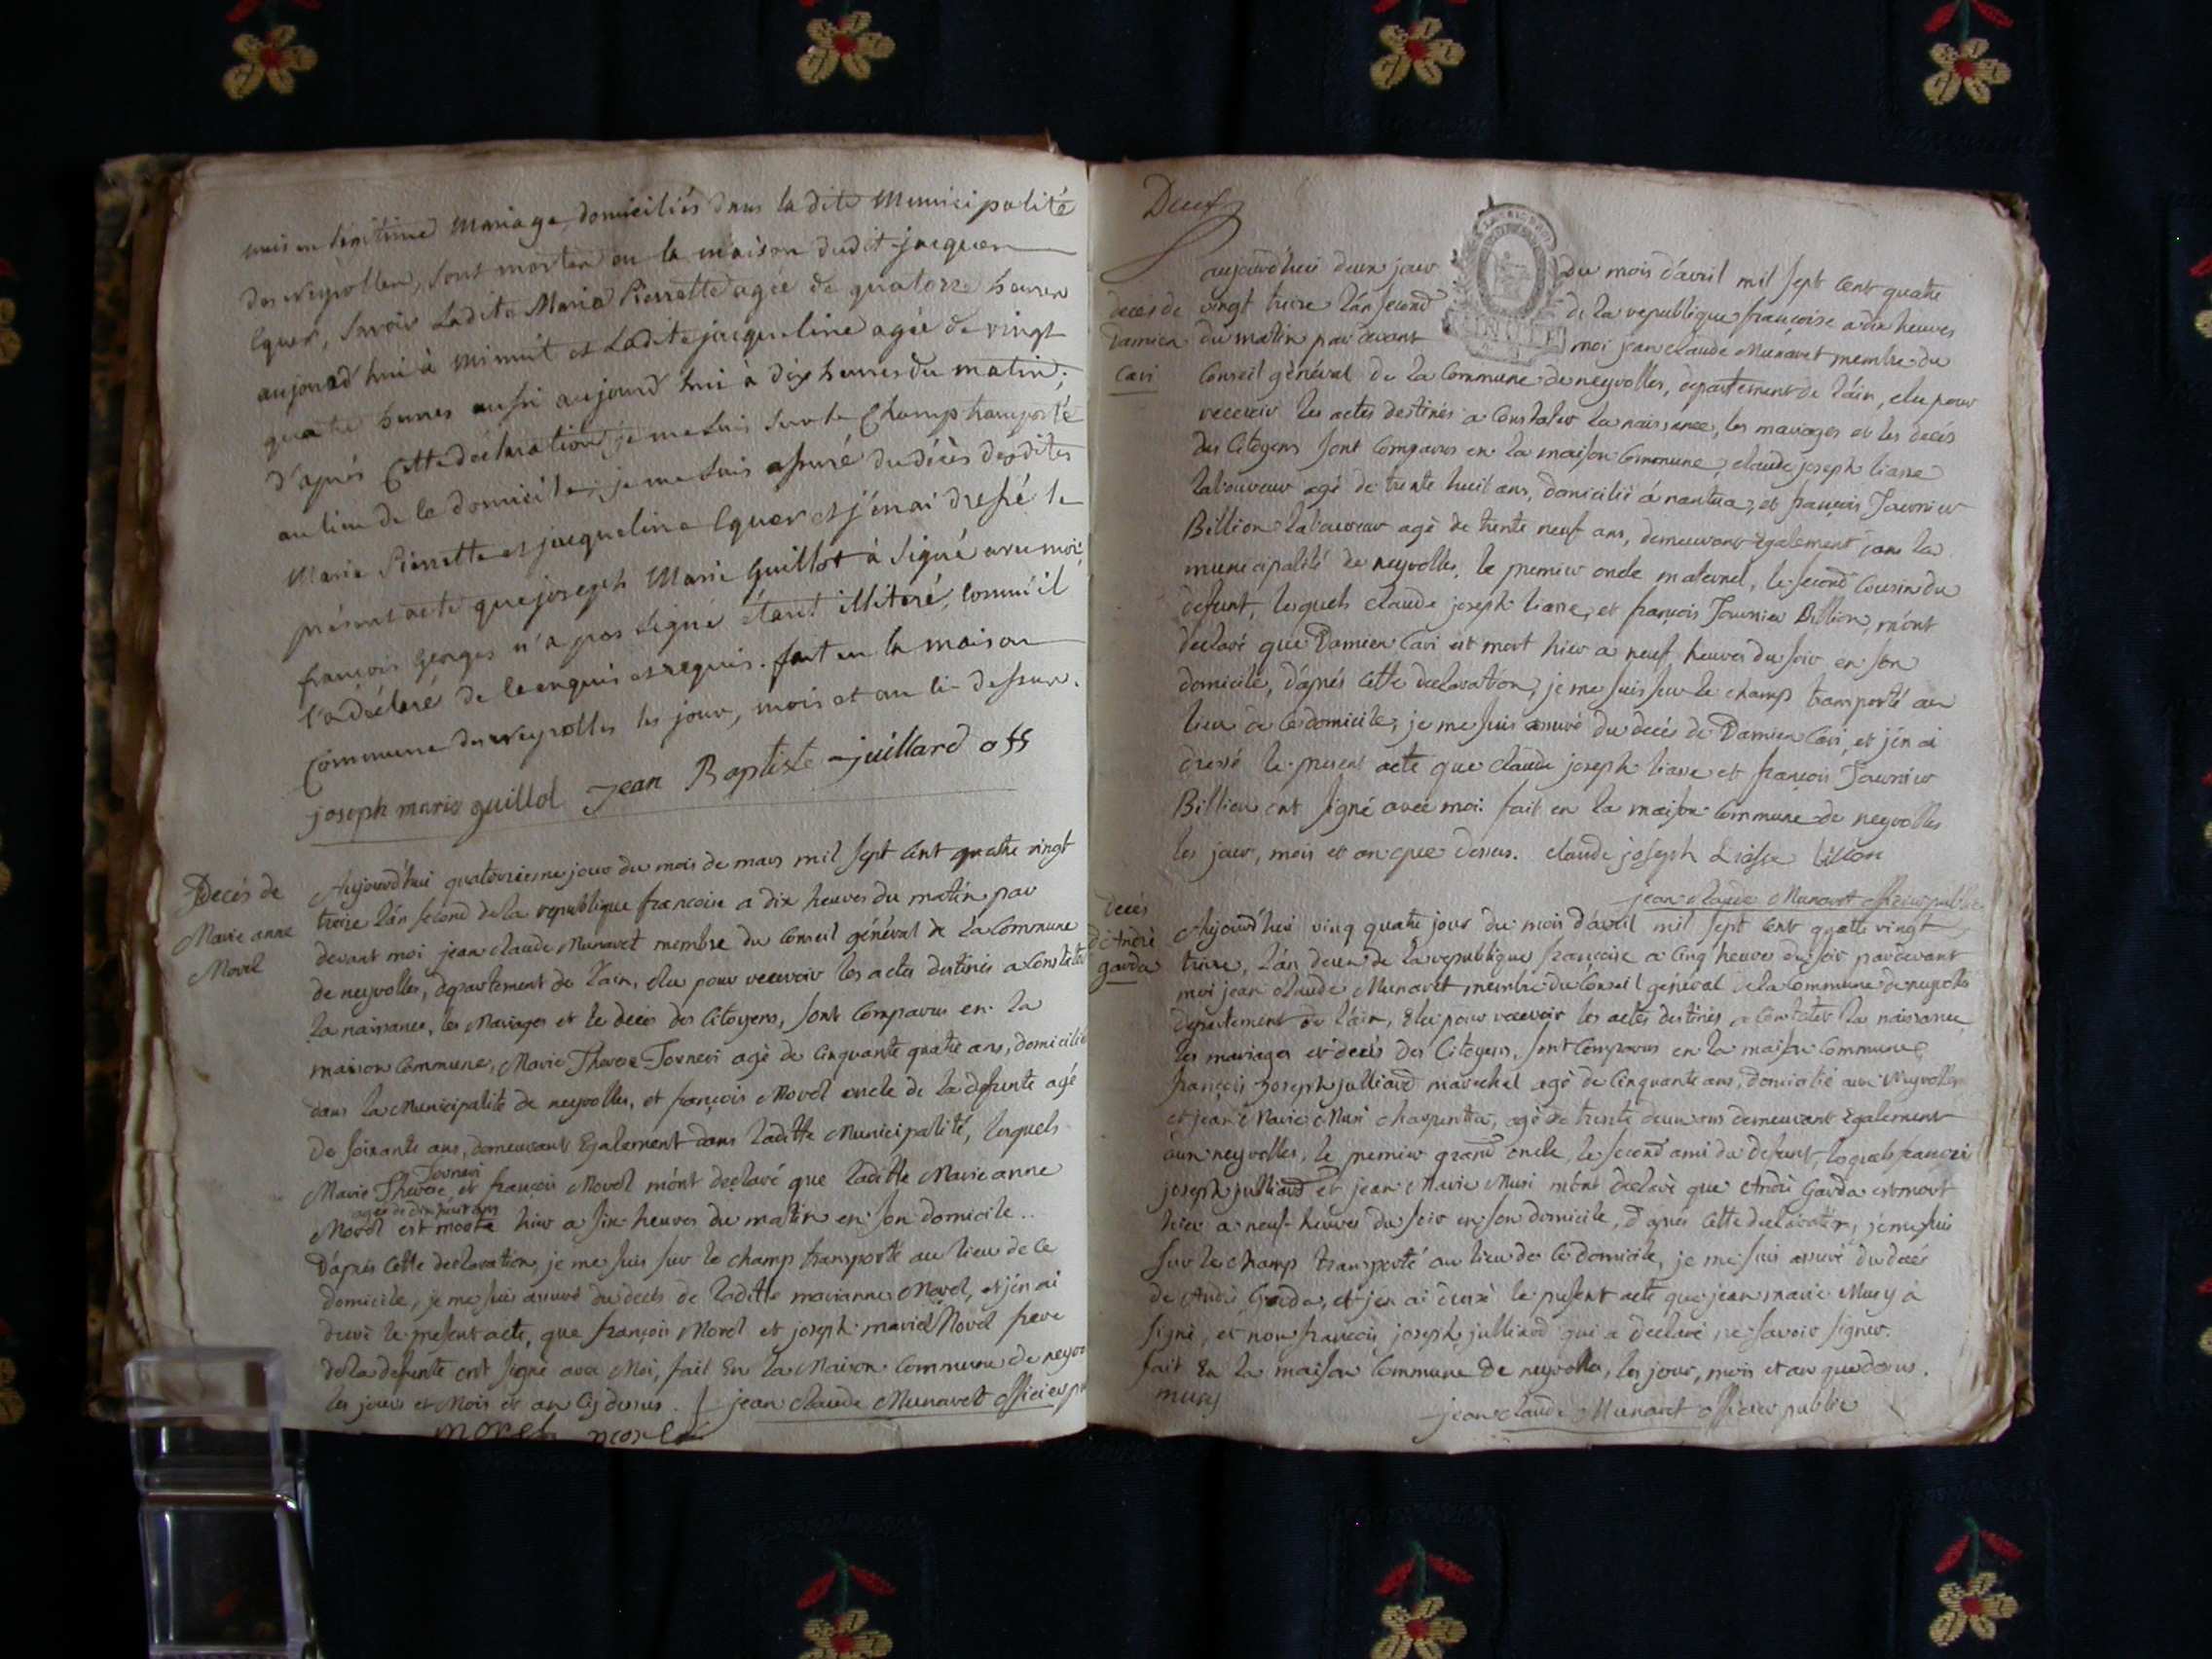 unis en légitime Mariage, domiciliés dans ladite Municipalité
des Neyrolles, sont mortes en la maison dudit jacques
Eguer, savoir Ladite Marie Pierrette agée de quatorze heures
aujourd'hui à minuit et Ladite jacqueline agée de vingt
quatre heures aussi aujourd'hui à dix heures du matin;
d'après Cette déclaration je me suis sur le Champ transporté
au lieu de le domicile, je me suis assuré du décès desdites
Marie Pierrette et jacqueline Eguer et j'en ai dressé le
présent acte que joseph Marie Guillot à Signé avec moi
françois Georges n'a pas signé étant illiteré, comme il
l'a déclaré de le enquis et requis. fait en la maison
Commune des Neyrolles les jour, mois et an ci dessus.
joseph marie guillot Jean Baptiste juillard off
Decès de
Marie anne
Morel
Aujourd'hui quatorzieme jour du mois de mars mil sept cent quatre vingt
treize l'an second de la republique francoise a dix heures du matin par
devant moi jean claude Munavet membre du Conseil général de la Commune
de neyrolles, departement de l'ain, elu pour recevoir les actes destinés a constater
la naissance, les Mariages et le decès des Citoyens, sont comparus en la
maison commune, Marie Therese Torneri agé de cinquante quatre ans, domicilié
dans la Municipalité de neyrolles, et françois Morel oncle de la defunte agé
de soixante ans, demeurant Egalement dans laditte Municipalité, lesquels
Torneri
Marie Therese et françois Morel m'ont declaré que laditte Marie anne
agée de dix huit ans
Morel est morte hier a six heures du matin en son domicile..
D'après cette declaration je me suis sur le champ transporté au lieu de ce
domicile, je me suis assuré du decès de laditte marianne Morel, et j'en ai
dressé le present acte, que françois Morel et joseph marie Morel frere
de la defunte ont signé avec Moi, fait En la Maison commune de neyro
les jours et Mois et an cy dessus. jean claude Munavet officier pu
morel morel
Decès
aujourd'hui deux jour du mois d'avril mil sept cent quatre
decès de vingt treize l'an second de la republique françoise a dix heures
Damien du matin par devant moi jean claude Munavet membre du
Cari Conseil général de la Commune de neyrolles, departement de l'ain, elu pour
recevoir les actes destinés a constater la naissance, les mariages et les decès
des Citoyens sont comparus en la maison commune, claude joseph liasse
laboureur agé de trente huit ans, domicilié á nantua, et françois Tournier
Billion laboureur agè de trente neuf ans, demeurant egalement dans la
municipalité de neyrolles, le premier oncle maternel, le second cousin du
defunt, lesquels claude joseph liasse, et françois Tournier Billion, m'ont
declaré que Damien Cari est mort hier a neuf heures du soir en son
domicile, d'après cette declaration, je me suis sur le champ transporté au
lieu de ce domicile, je me suis assuré du decès de Damien Cari, et j'en ai
dressé le present acte que claude joseph liasse et françois Tournier
Billion ont signé avec moi. fait en la maison commune de neyrolles
les jour, mois et an que dessus. claude joseph Liasse billion
jean claude Munavet officier public
decès
d'André
garda
Aujourd'hui vinq quatre jour du mois d'avril mil sept cent quatre vingt
treize, l'an deux de la republique françoise a cinq heures du soir pardevant
moi jean claude Munavet membre du Conseil général de la commune de neyrolles
departement de l'ain, elu pour recevoir les actes destinés a constater la naissance
les mariages et decès des Citoyens, sont comparus en la maison commune
françois joseph julliard marechal agè de cinquante ans, domicilié aux Neyrolles
et jean Marie Musi charpentier, agé de trente deux ans demeurant egalement
aux neyrolles, le premier grand oncle, le second ami du defunt, lesquels françois
joseph julliard et jean Marie Musi m'ont declaré que André Garda est mort
hier a neuf heures du soir en son domicile, d'après cette declaration, je me suis
sur le champ transporté au lieu de ce domicile, je me suis assuré du decès
de André Garda, et j'en ai dressé le present acte que jean marie Musy à
signé, et non françois joseph julliard qui a declaré ne savoir signer.
fait En la maison commune de neyrolles, les jour, mois et an que dessus.
musy
jean claude Munavet officier public